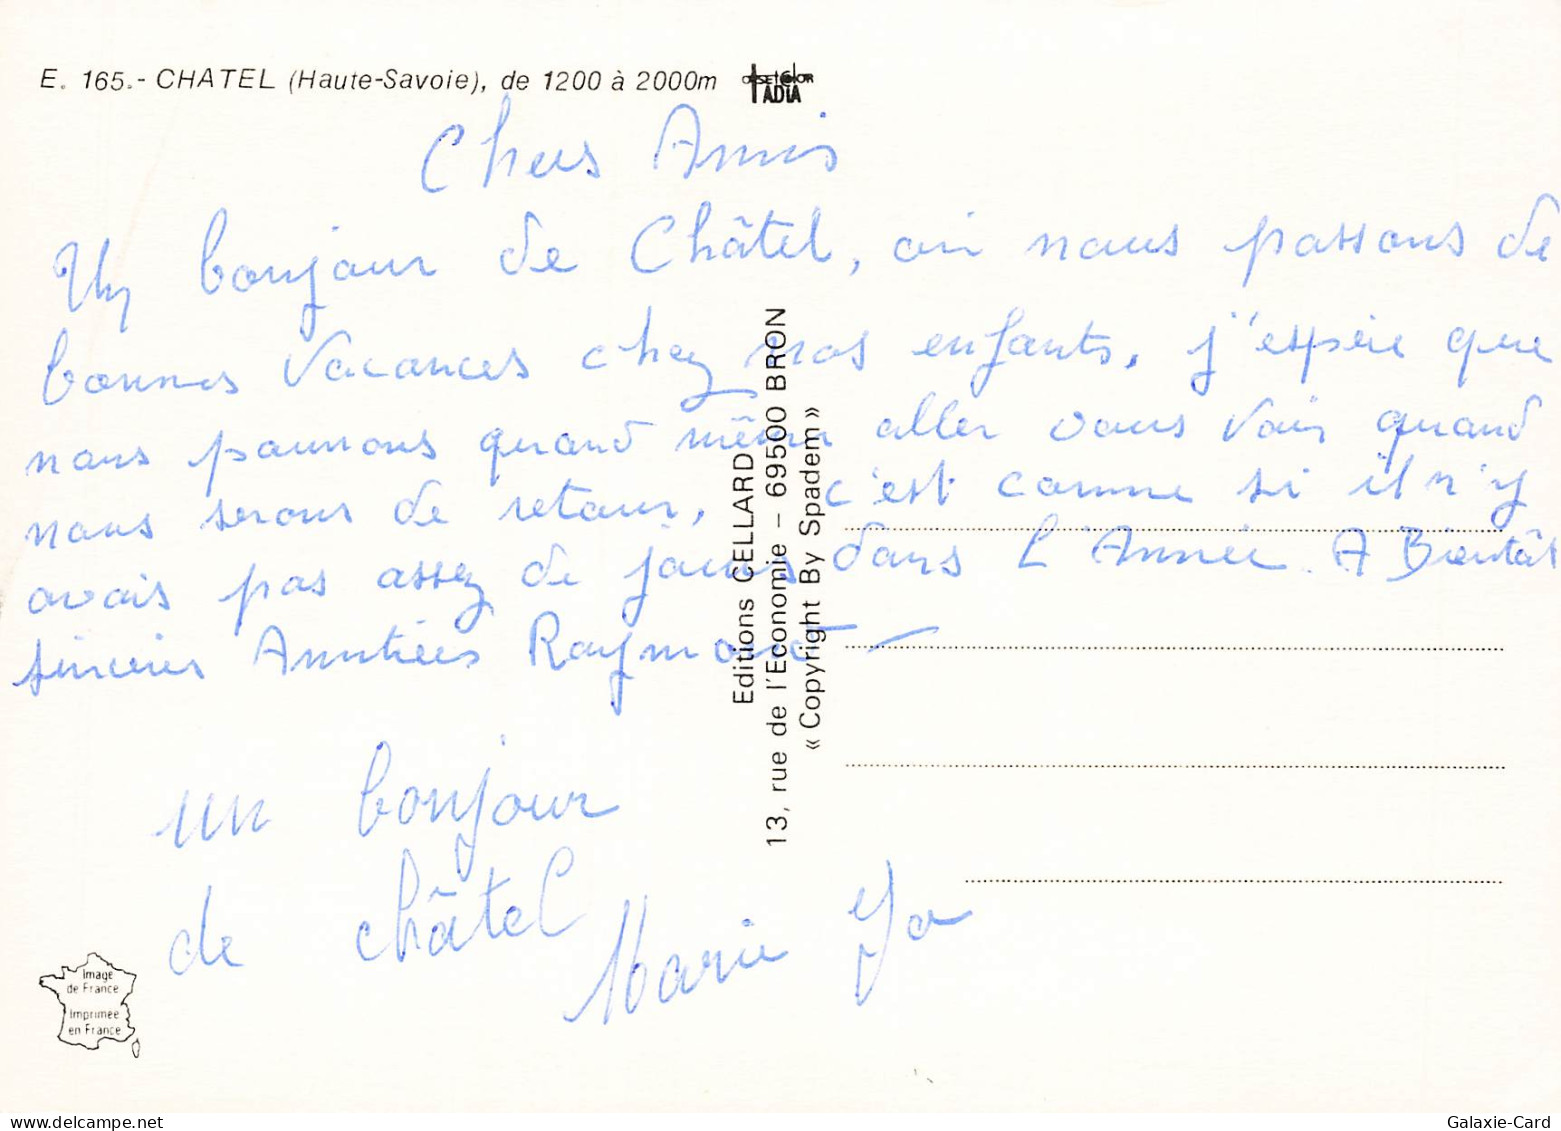 E. 165.- CHATEL (Haute-Savoie), de 1200 à 2000m
OFFSET COLOR
IADIA
Chers Amis
Un bonjour de Châtel, ou nous passons de
bonnes vacances chez nos enfants, j'espère que
nous pourrons quand même aller vous voir quand
nous serons de retour, c'est comme si il n'y
avais pas assez de jours dans L'Année. A Bientôt
sincères Amitiées Raymond
un bonjour
de châtel
Marie Jo
Editions CELLARD
13, rue de l'Economie - 69500 BRON
« Copyright By Spadem »
Image
de France
Imprimée
en France
delcampe.net
Galaxie-Card